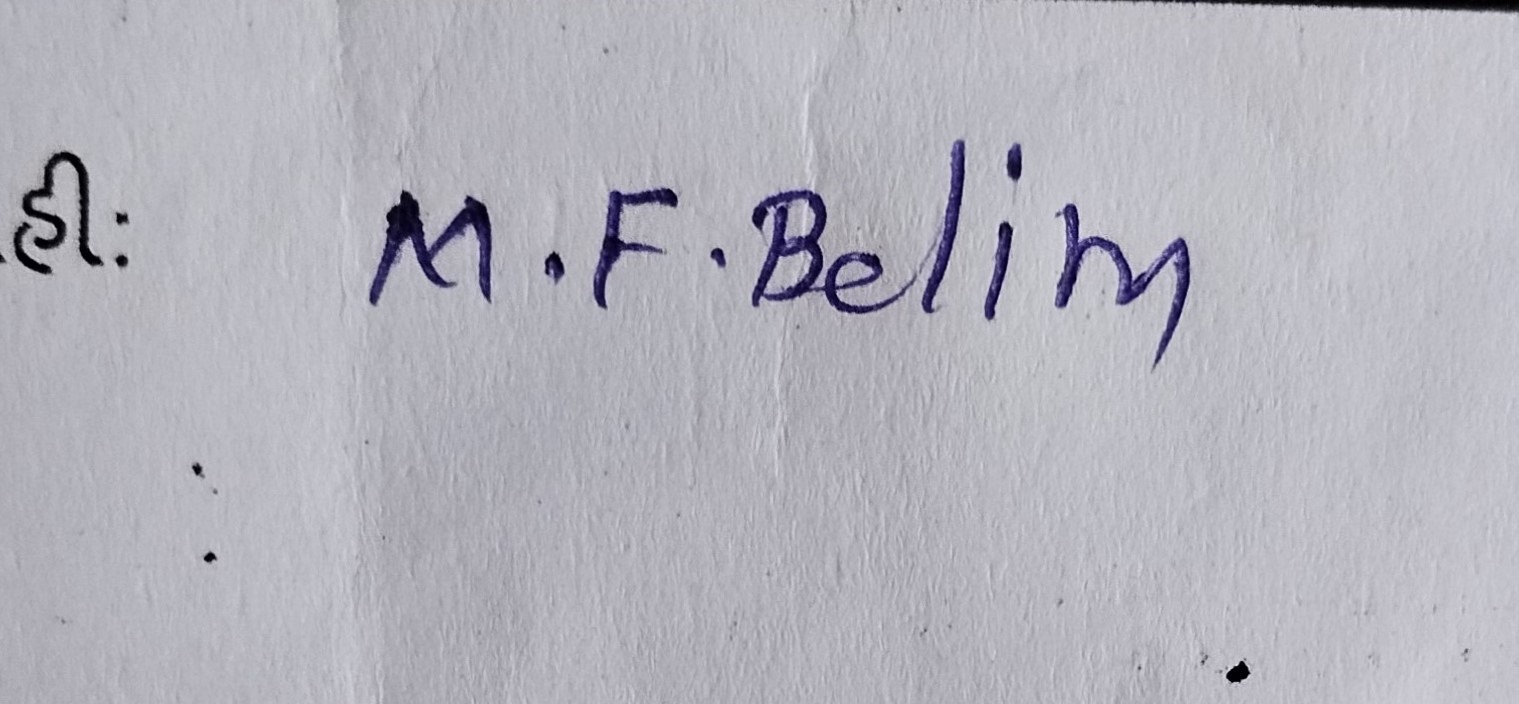 હી: M.F.Belim